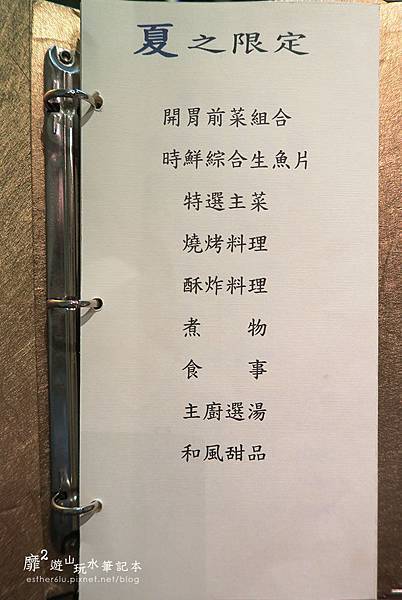 夏之限定
開胃前菜組合
時鮮綜合生魚片
特選主菜
燒烤料理
酥炸料理
煮　物
食　事
主廚選湯
和風甜品
靡2遊山玩水筆記本
esther61u.pixnet.net/blog